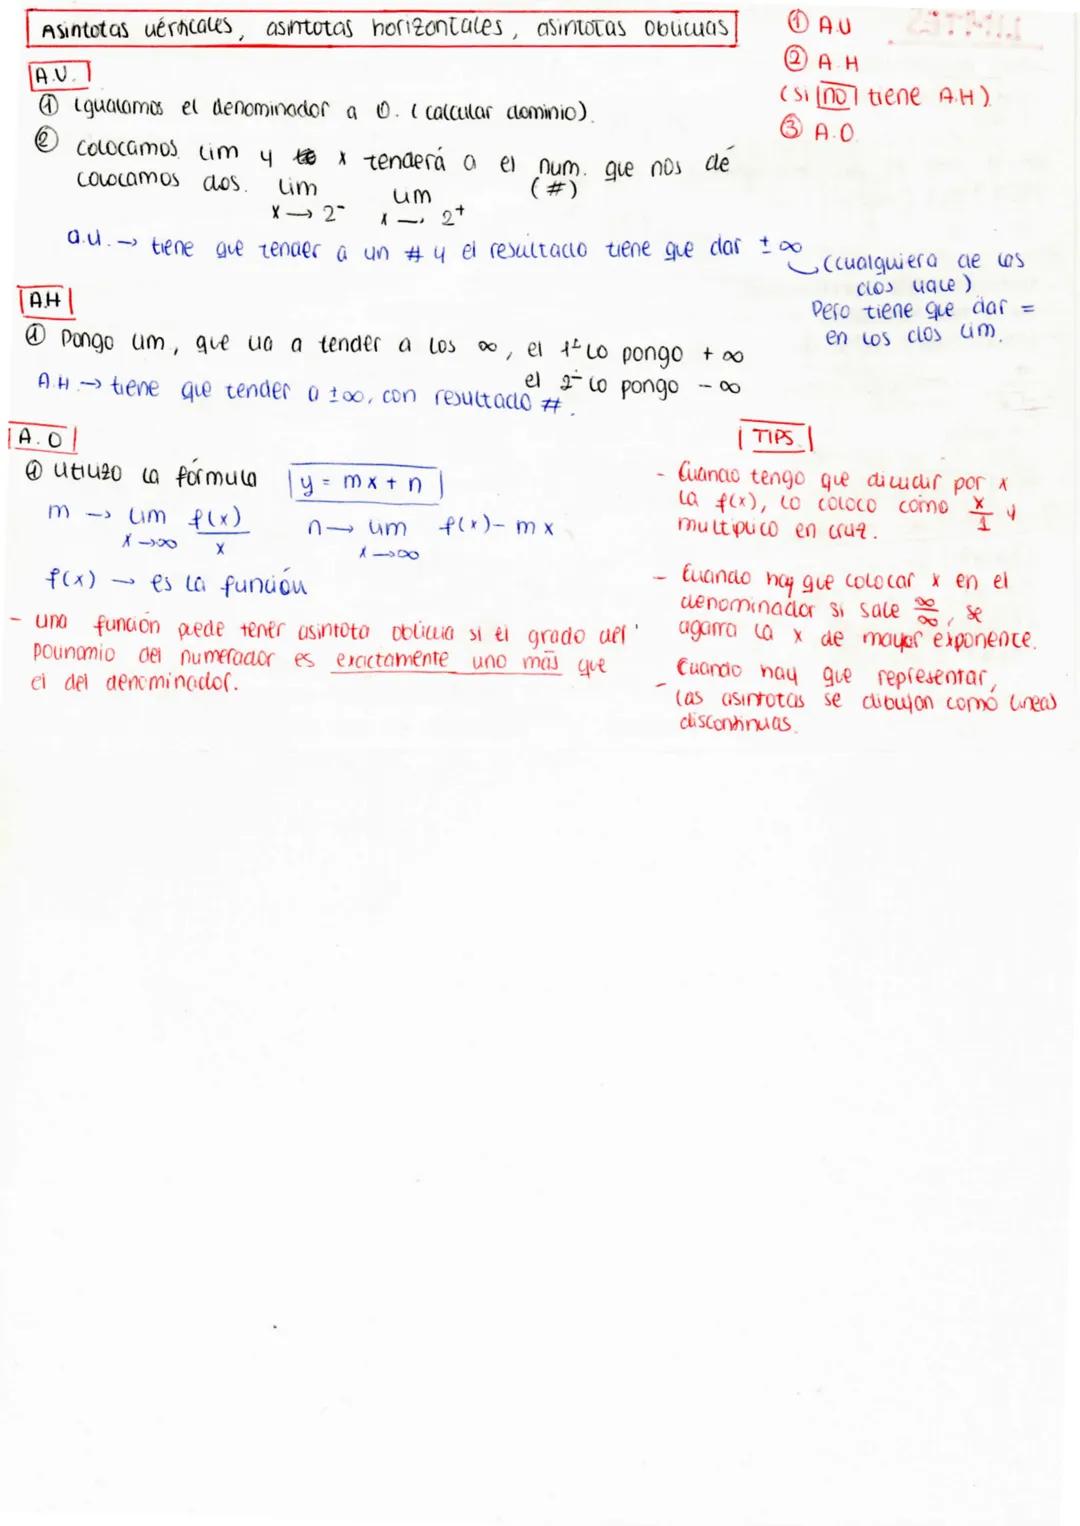 Asintotas verticales, asintotas horizontales, asintotas oblicuas
① A.V
② A.H
(si no tiene A.H)
③ A.O.
A.V.
① igualamos el denominador a 0. (calcular dominio).
② colocamos lim y x tenderá a el num. que nos dé
(#)
colocamos dos. lim x → 2⁻ lim x → 2⁺
a.v. → tiene que tender a un # y el resultado tiene que dar ± ∞
(cualquiera de los
dos vale)
Pero tiene que dar =
en los dos lim.
A.H
① Pongo lim, que va a tender a los ∞, el 1º lo pongo + ∞
el 2º lo pongo - ∞
A.H → tiene que tender a ±∞, con resultado #.
A.O
① utilizo la fórmula y = mx + n
m → lim x→∞ f(x)/x n → lim x→∞ f(x) - mx
f(x) → es la función
- una función puede tener asintota oblicua si el grado del
polinomio del numerador es exactamente uno más que
el del denominador.
TIPS
- Cuando tengo que dividir por x
la f(x), lo coloco como x/1 y
multiplico en cruz.
- Cuando hay que colocar x en el
denominador si sale ∞/∞, se
agarra la x de mayor exponente.
- Cuando hay que representar,
las asintotas se dibujan como líneas
discontinuas.